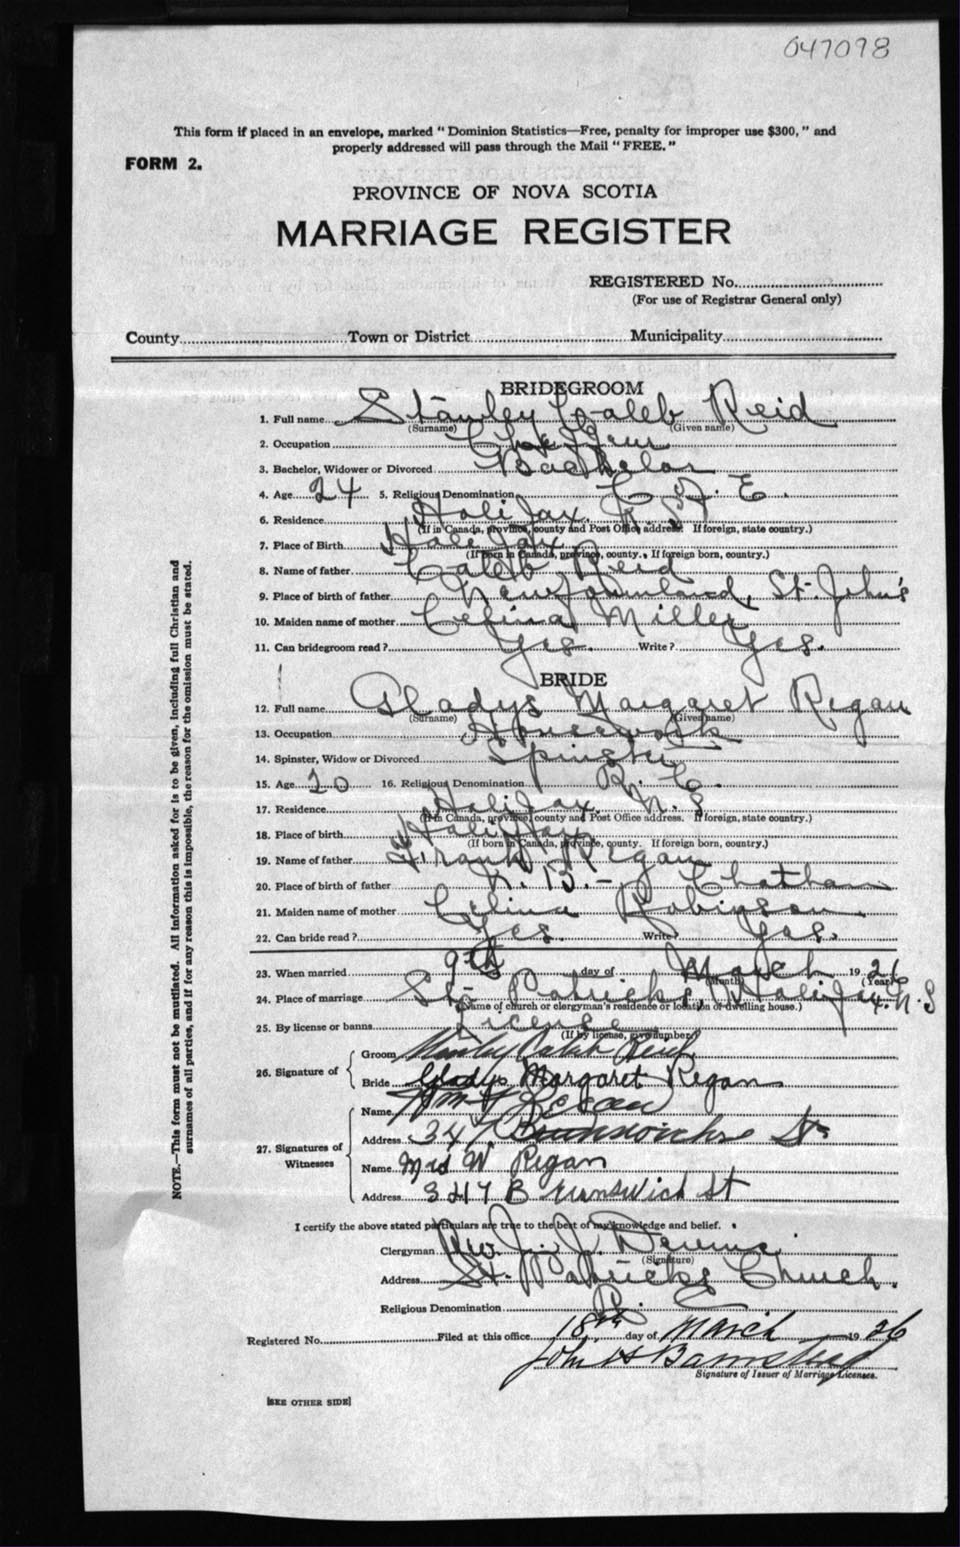 047098
This form if placed in an envelope, marked "Dominion Statistics—Free, penalty for improper use $300," and
properly addressed will pass through the Mail "FREE."
FORM 2.
PROVINCE OF NOVA SCOTIA
MARRIAGE REGISTER
REGISTERED No.
(For use of Registrar General only)
County Town or District Municipality
BRIDEGROOM
1. Full name Stanley Caleb Reid
(Surname) (Given name)
2. Occupation
3. Bachelor, Widower or Divorced Bachelor
4. Age 24 5. Religious Denomination C. of E.
6. Residence Halifax, N. S.
(If in Canada, province, county and Post Office address. If foreign, state country.)
7. Place of Birth Halifax
(If born in Canada, province, county. If foreign born, country.)
8. Name of father Caleb Reid
9. Place of birth of father Newfoundland, St. John's
10. Maiden name of mother Miller
11. Can bridegroom read? Yes. Write? Yes.
BRIDE
12. Full name Gladys Margaret Regan
(Surname) (Given name)
13. Occupation Housework
14. Spinster, Widow or Divorced Spinster
15. Age 20 16. Religious Denomination R. C.
17. Residence Halifax, N. S
(If in Canada, province, county and Post Office address. If foreign, state country.)
18. Place of birth Halifax
(If born in Canada, province, county. If foreign born, country.)
19. Name of father Frank Regan
20. Place of birth of father N. B. - Chatham
21. Maiden name of mother Celina Robinson
22. Can bride read? Yes. Write? Yes.
23. When married 9th day of March 1926
(Month) (Year)
24. Place of marriage St. Patricks, Halifax, N. S
(Name of church or clergyman's residence or location of dwelling house.)
25. By license or banns License
(If by license, give number)
26. Signature of
Groom Stanley Caleb Reid
Bride Gladys Margaret Regan
27. Signatures of Witnesses
Name Wm F Regan
Address 347 Brunswick St
Name Mrs W Regan
Address 347 Brunswick St
I certify the above stated particulars are true to the best of my knowledge and belief.
Clergyman Rev. J. J.
(Signature)
Address St. Patricks Church.
Religious Denomination R. C.
Registered No. Filed at this office 18th day of March 1926
John H Barnstead
Signature of Issuer of Marriage Licenses.
[SEE OTHER SIDE]
NOTE.—This form must not be mutilated. All information asked for is to be given, including full Christian and
surnames of all parties, and if for any reason this is impossible, the reason for the omission must be stated.